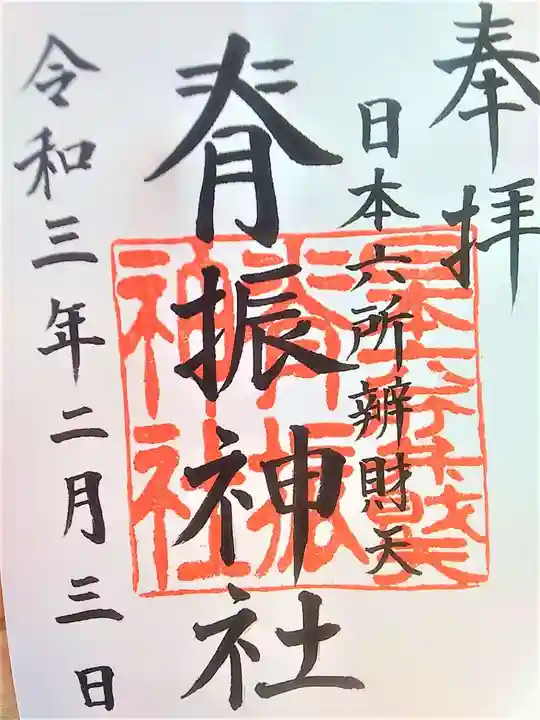 奉拝
日本六所辨財天
脊振神社
令和三年二月三日
脊振
神社